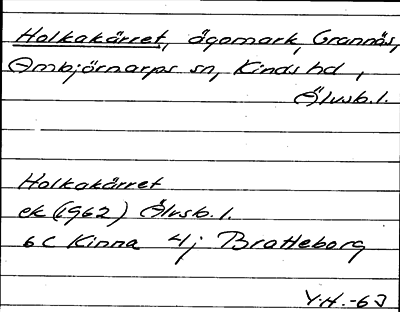 Holkakärret, ägomark, Grannäs,
Ambjörnarps sn, Kinds hd,
Älvsb.l.
Holkakärret
ek (1962) Älvsb. l.
6 C Kinna 4j Bratteborg
Y.H.-63